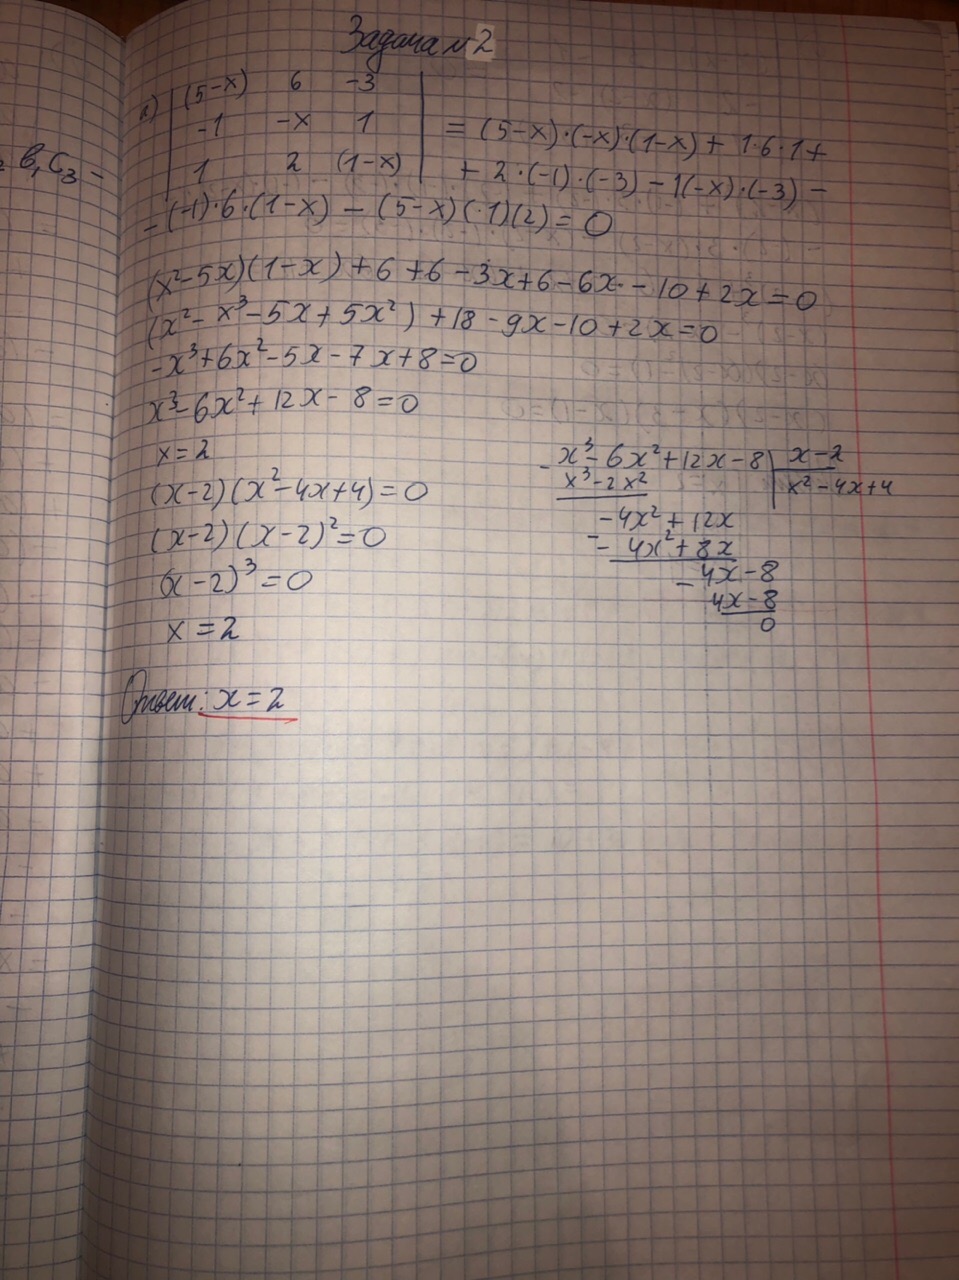 Задача №2
а) | (5-x) 6 -3 |
| -1 -x 1 | = (5-x)·(-x)·(1-x) + 1·6·1 +
в₁c₃ -
| 1 2 (1-x) | + 2·(-1)·(-3) - 1(-x)·(-3) -
- (-1)·6·(1-x) - (5-x)(·1)(2) = 0
(x²-5x)(1-x) + 6 + 6 - 3x + 6 - 6x - 10 + 2x = 0
(x² - x³ - 5x + 5x²) + 18 - 9x - 10 + 2x = 0
-x³ + 6x² - 5x - 7x + 8 = 0
x³ - 6x² + 12x - 8 = 0
x = 2
(x-2)(x² - 4x + 4) = 0
(x-2)(x-2)² = 0
(x-2)³ = 0
x = 2
- x³ - 6x² + 12x - 8 | x - 2
x³ - 2x² | x² - 4x + 4
- 4x² + 12x
- - 4x² + 8x
- 4x - 8
4x - 8
0
Ответ: x = 2